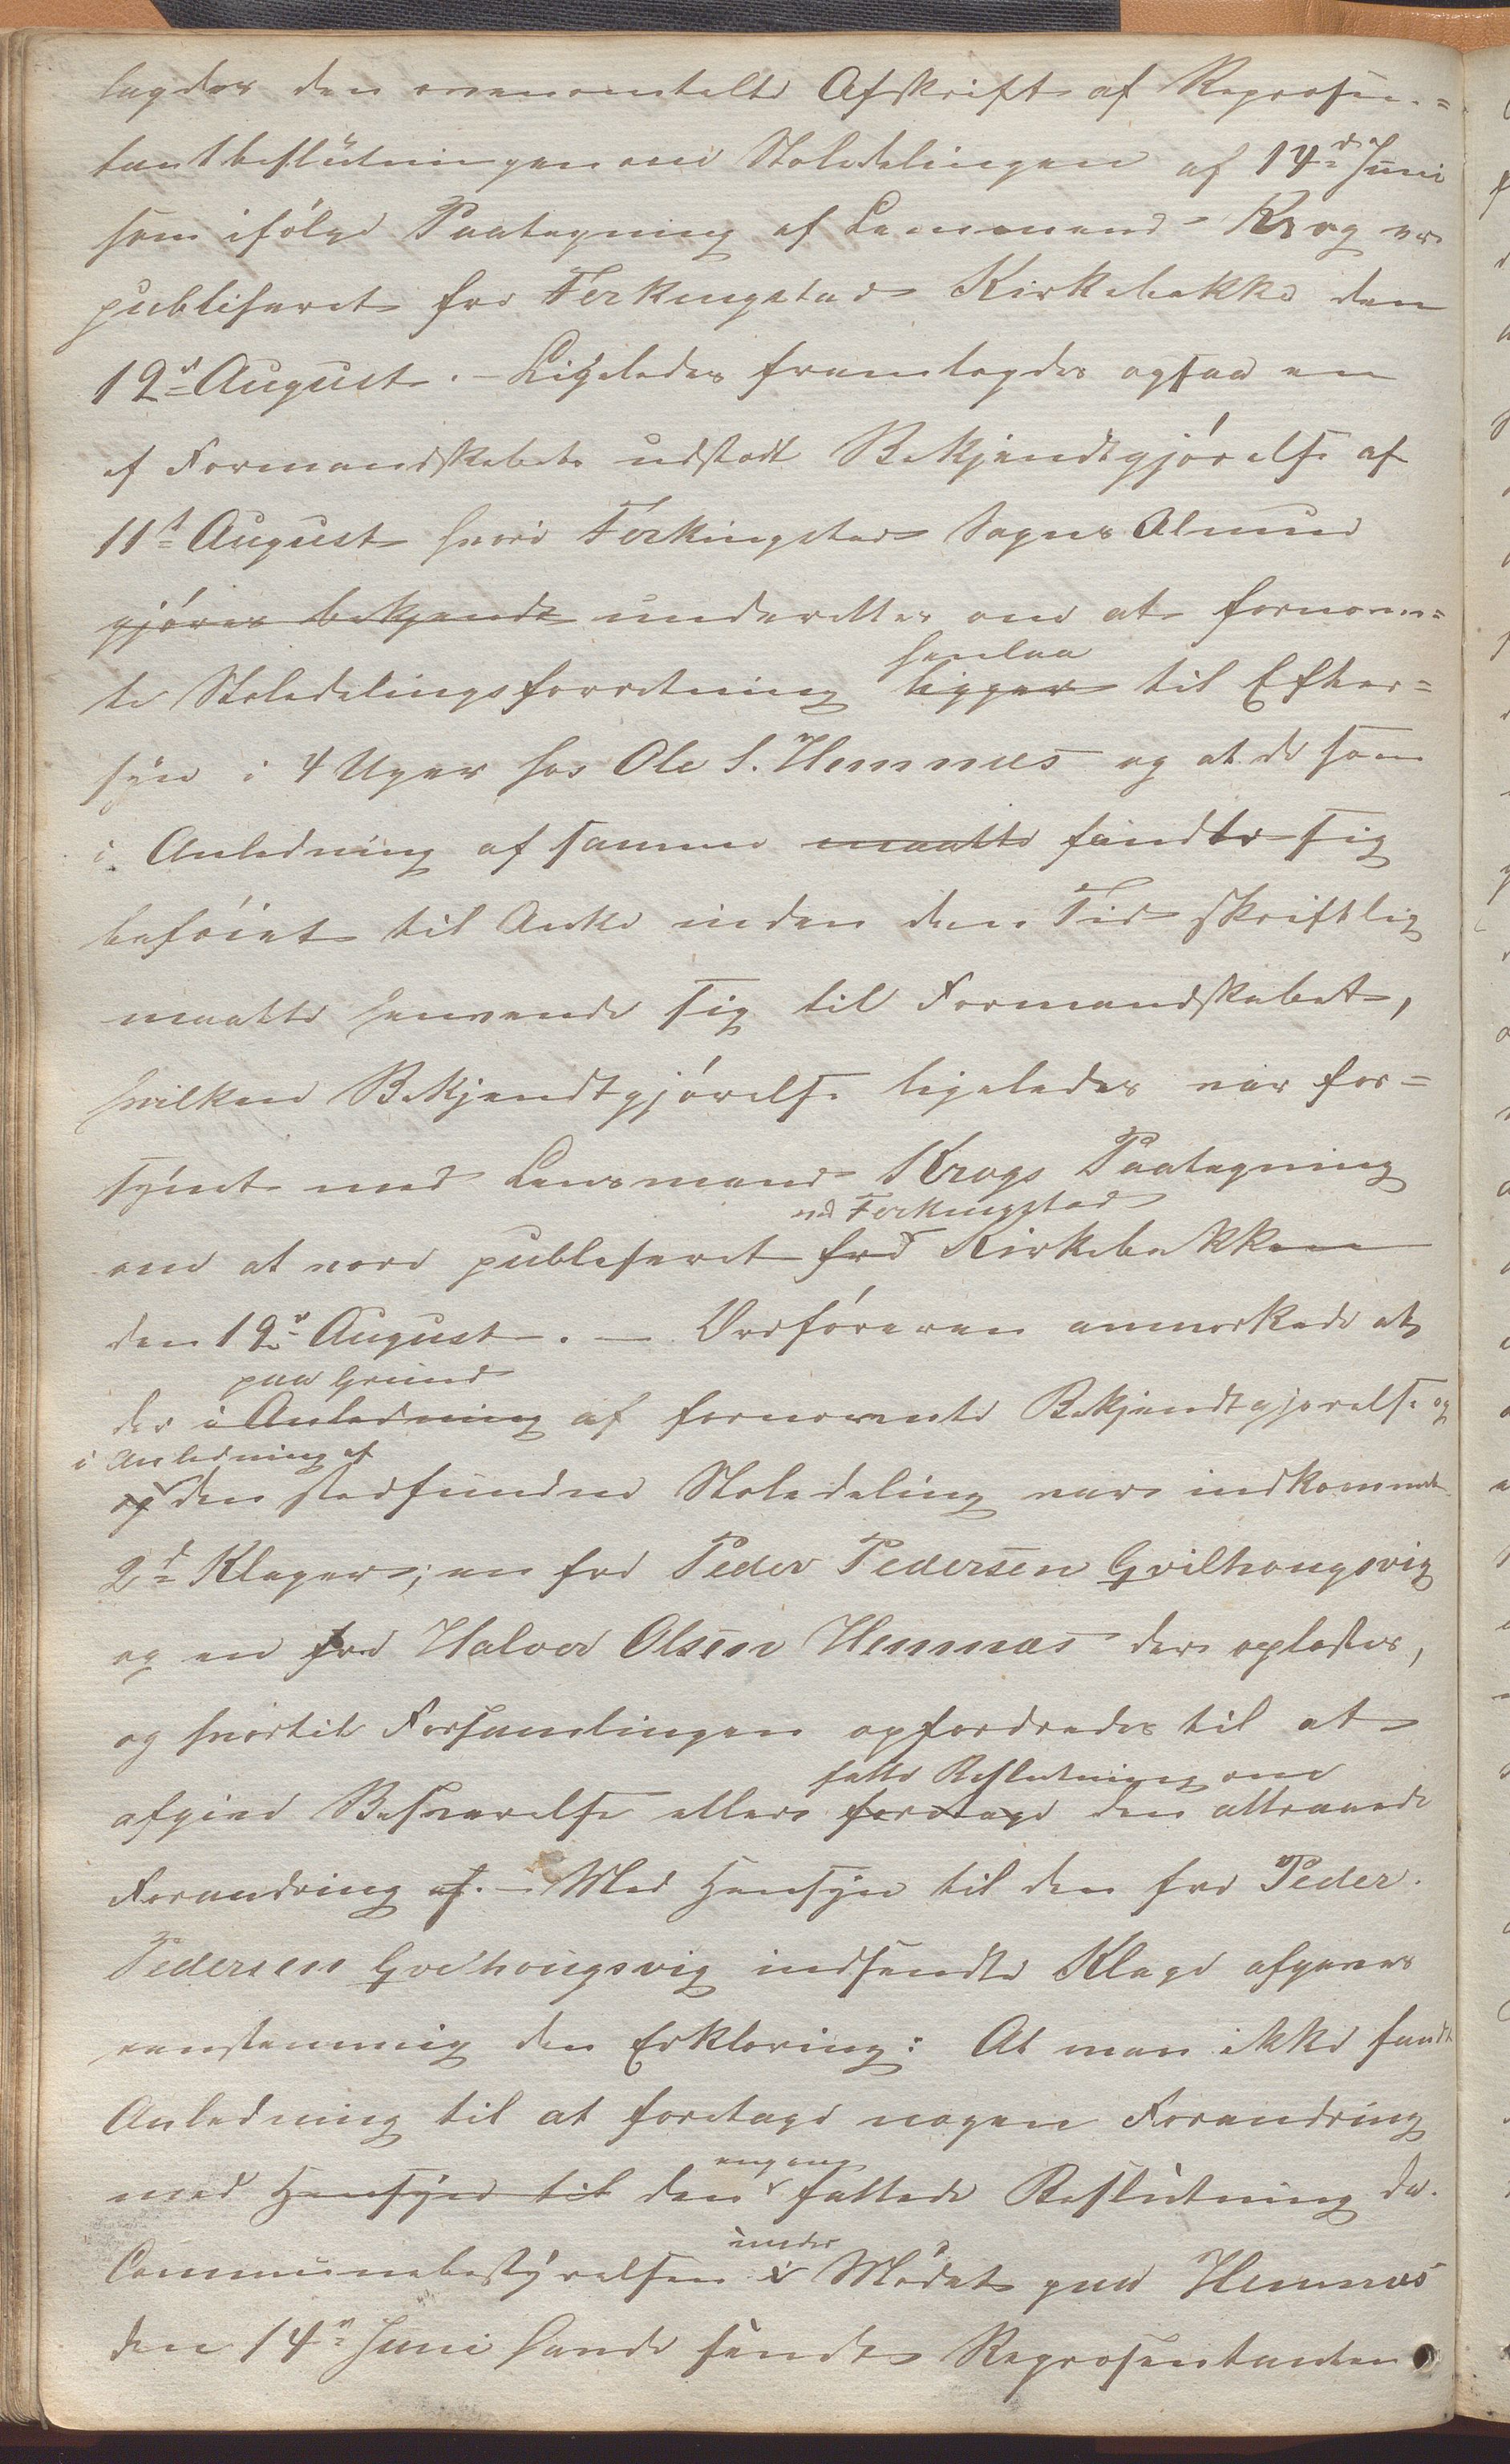 lagdes den ovenomtalte Afskrift af Repræsen-
tantbeslutningen om Stoledelingen af 14de Juni
som ifølge Paategning af Lensmand Krog er
publiseret fra Ferkingstad Kirkebakke den
12te August. – Ligeledes framlagdes ogsaa en
af Formandskabet udstædt Bekjendtgjørelse af
11te August hvori Ferkingstad Sogns Almue
gjøres bekjendt underettes om at fornævn-
henlaa
te Stoledelingsforretning ligger til Efter-
syn i 4 Uger hos Ole S. Hemnæs og at de som
i Anledning af samme maatte findte sig
beføiet til Anke inden den Tid skriftlig
maatte henvende sig til Formandskabet,
hvilken Bekjendtgjørelse ligeledes var for-
synet med Lensmand Krogs Paategning
ved Ferkingstad
om at være publiseret fra Kirkebakken
den 12te August. – Ordføreren anmærkede at
paa Grund
der i Anledning af fornævnte Bekjendtgjørelse og
i Anledning af
og den stedfundne Stoledeling var indkommet
2de Klager; en fra Peder Pedersen Hvilhougsvig
og en fra Halvor Olsen Hemnæs der oplæstes,
og hvortil Forsamlingen opfordredes til at
fatte Beslutning om
afgive Besvarelse eller foretage den attraaede
Forandring af. – Med Hensyn til den fra Peder
Pedersen Hvilhougsvig indsendte Klage afgaves
eenstemmig den Erklæring: At man ikke fandt
Anledning til at foretage nogen Forandring
engang
med Hensyn til den fattede Beslutning da
under
Communebestyrelsen i Mødet paa Hemnæs
den 14de Juni havde sendt Repræsentanten